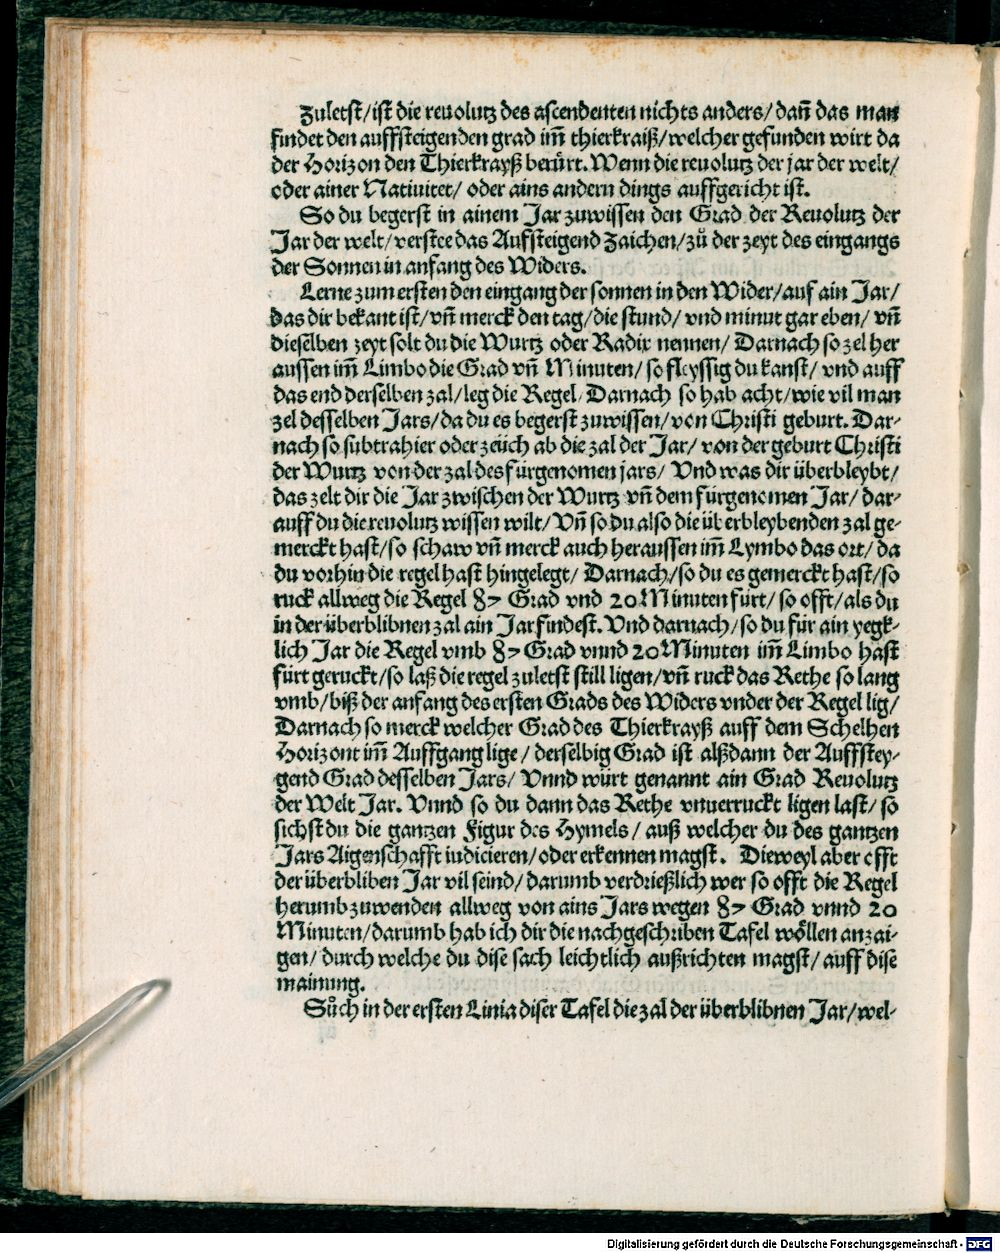 Zuletst/ist die reuolutz des ascendenten nichts anders/dañ das man
findet den auffsteigenden grad im̃ thierkraiß/welcher gefunden wirt da
der Horizon den Thierkrayß berürt. Wenn die reuolutz der jar der welt/
oder ainer Nativitet/ oder ains andern dings auffgericht ist.
So du begerst in ainem Jar zuwissen den Grad der Reuolutz der
Jar der welt/verstee das Aufsteigend Zaichen/zů der zeyt des eingangs
der Sonnen in anfang des Widers.
Lerne zum ersten den eingang der sonnen in den Wider/auf ain Jar/
das dir bekant ist/vñ merck den tag/die stund/ vnd minut gar eben/ vñ
dieselben zeyt solt du die Wurtz oder Radix nennen/ Darnach so zel her
aussen im̃ Limbo die Grad vñ Minuten/ so fleyssig du kanst/ vnd auff
das end derselben zal/leg die Regel/ Darnach so hab acht/wie vil man
zel desselben Jars/da du es begerst zuwissen/von Christi geburt. Dar-
nach so subtrahier oder zeüch ab die zal der Jar/ von der geburt Christi
der Wurtz von der zal des fürgenomen jars/ Vnd was dir überbleybt/
das zelt dir die Jar zwischen der Wurtz vñ dem fürgenomen Jar/ dar-
auff du die reuolutz wissen wilt/ Vñ so du also die überbleybenden zal ge-
merckt hast/so schaw vñ merck auch heraussen im̃ Lymbo das ort/ da
du vorhin die regel hast hingelegt/ Darnach/so du es gemerckt hast/so
ruck allweg die Regel 87 Grad vnd 20 Minuten fürt/ so offt/als du
in der überblibnen zal ain Jar findest. Vnd darnach/so du für ain yegk-
lich Jar die Regel vmb 87 Grad vnnd 20 Minuten im̃ Limbo hast
fürt geruckt/so laß die regel zuletst still ligen/vñ ruck das Rethe so lang
vmb/biß der anfang des ersten Grads des Widers vnder der Regel lig/
Darnach so merck welcher Grad des Thierkrayß auff dem Schelhen
Horizont im̃ Auffgang lige/ derselbig Grad ist alßdann der Auffstey-
gend Grad desselben Jars/ Vnnd würt genannt ain Grad Reuolutz
der Welt Jar. Vnnd so du dann das Rethe vnuerruckt ligen last/ so
sichst du die gantzen Figur des Hymels/ auß welcher du des gantzen
Jars Aigenschafft iudicieren/oder erkennen magst. Dieweyl aber offt
der überbliben Jar vil seind/ darumb verdrießlich wer so offt die Regel
herumb zuwenden allweg von ains Jars wegen 87 Grad vnnd 20
Minuten/darumb hab ich dir die nachgeschriben Tafel wöllen anzai-
gen/ durch welche du dise sach leichtlich außrichten magst/ auff dise
mainung.
Sůch in der ersten Linia diser Tafel die zal der überblibnen Jar/wel-
Digitalisierung gefördert durch die Deutsche Forschungsgemeinschaft - DFG